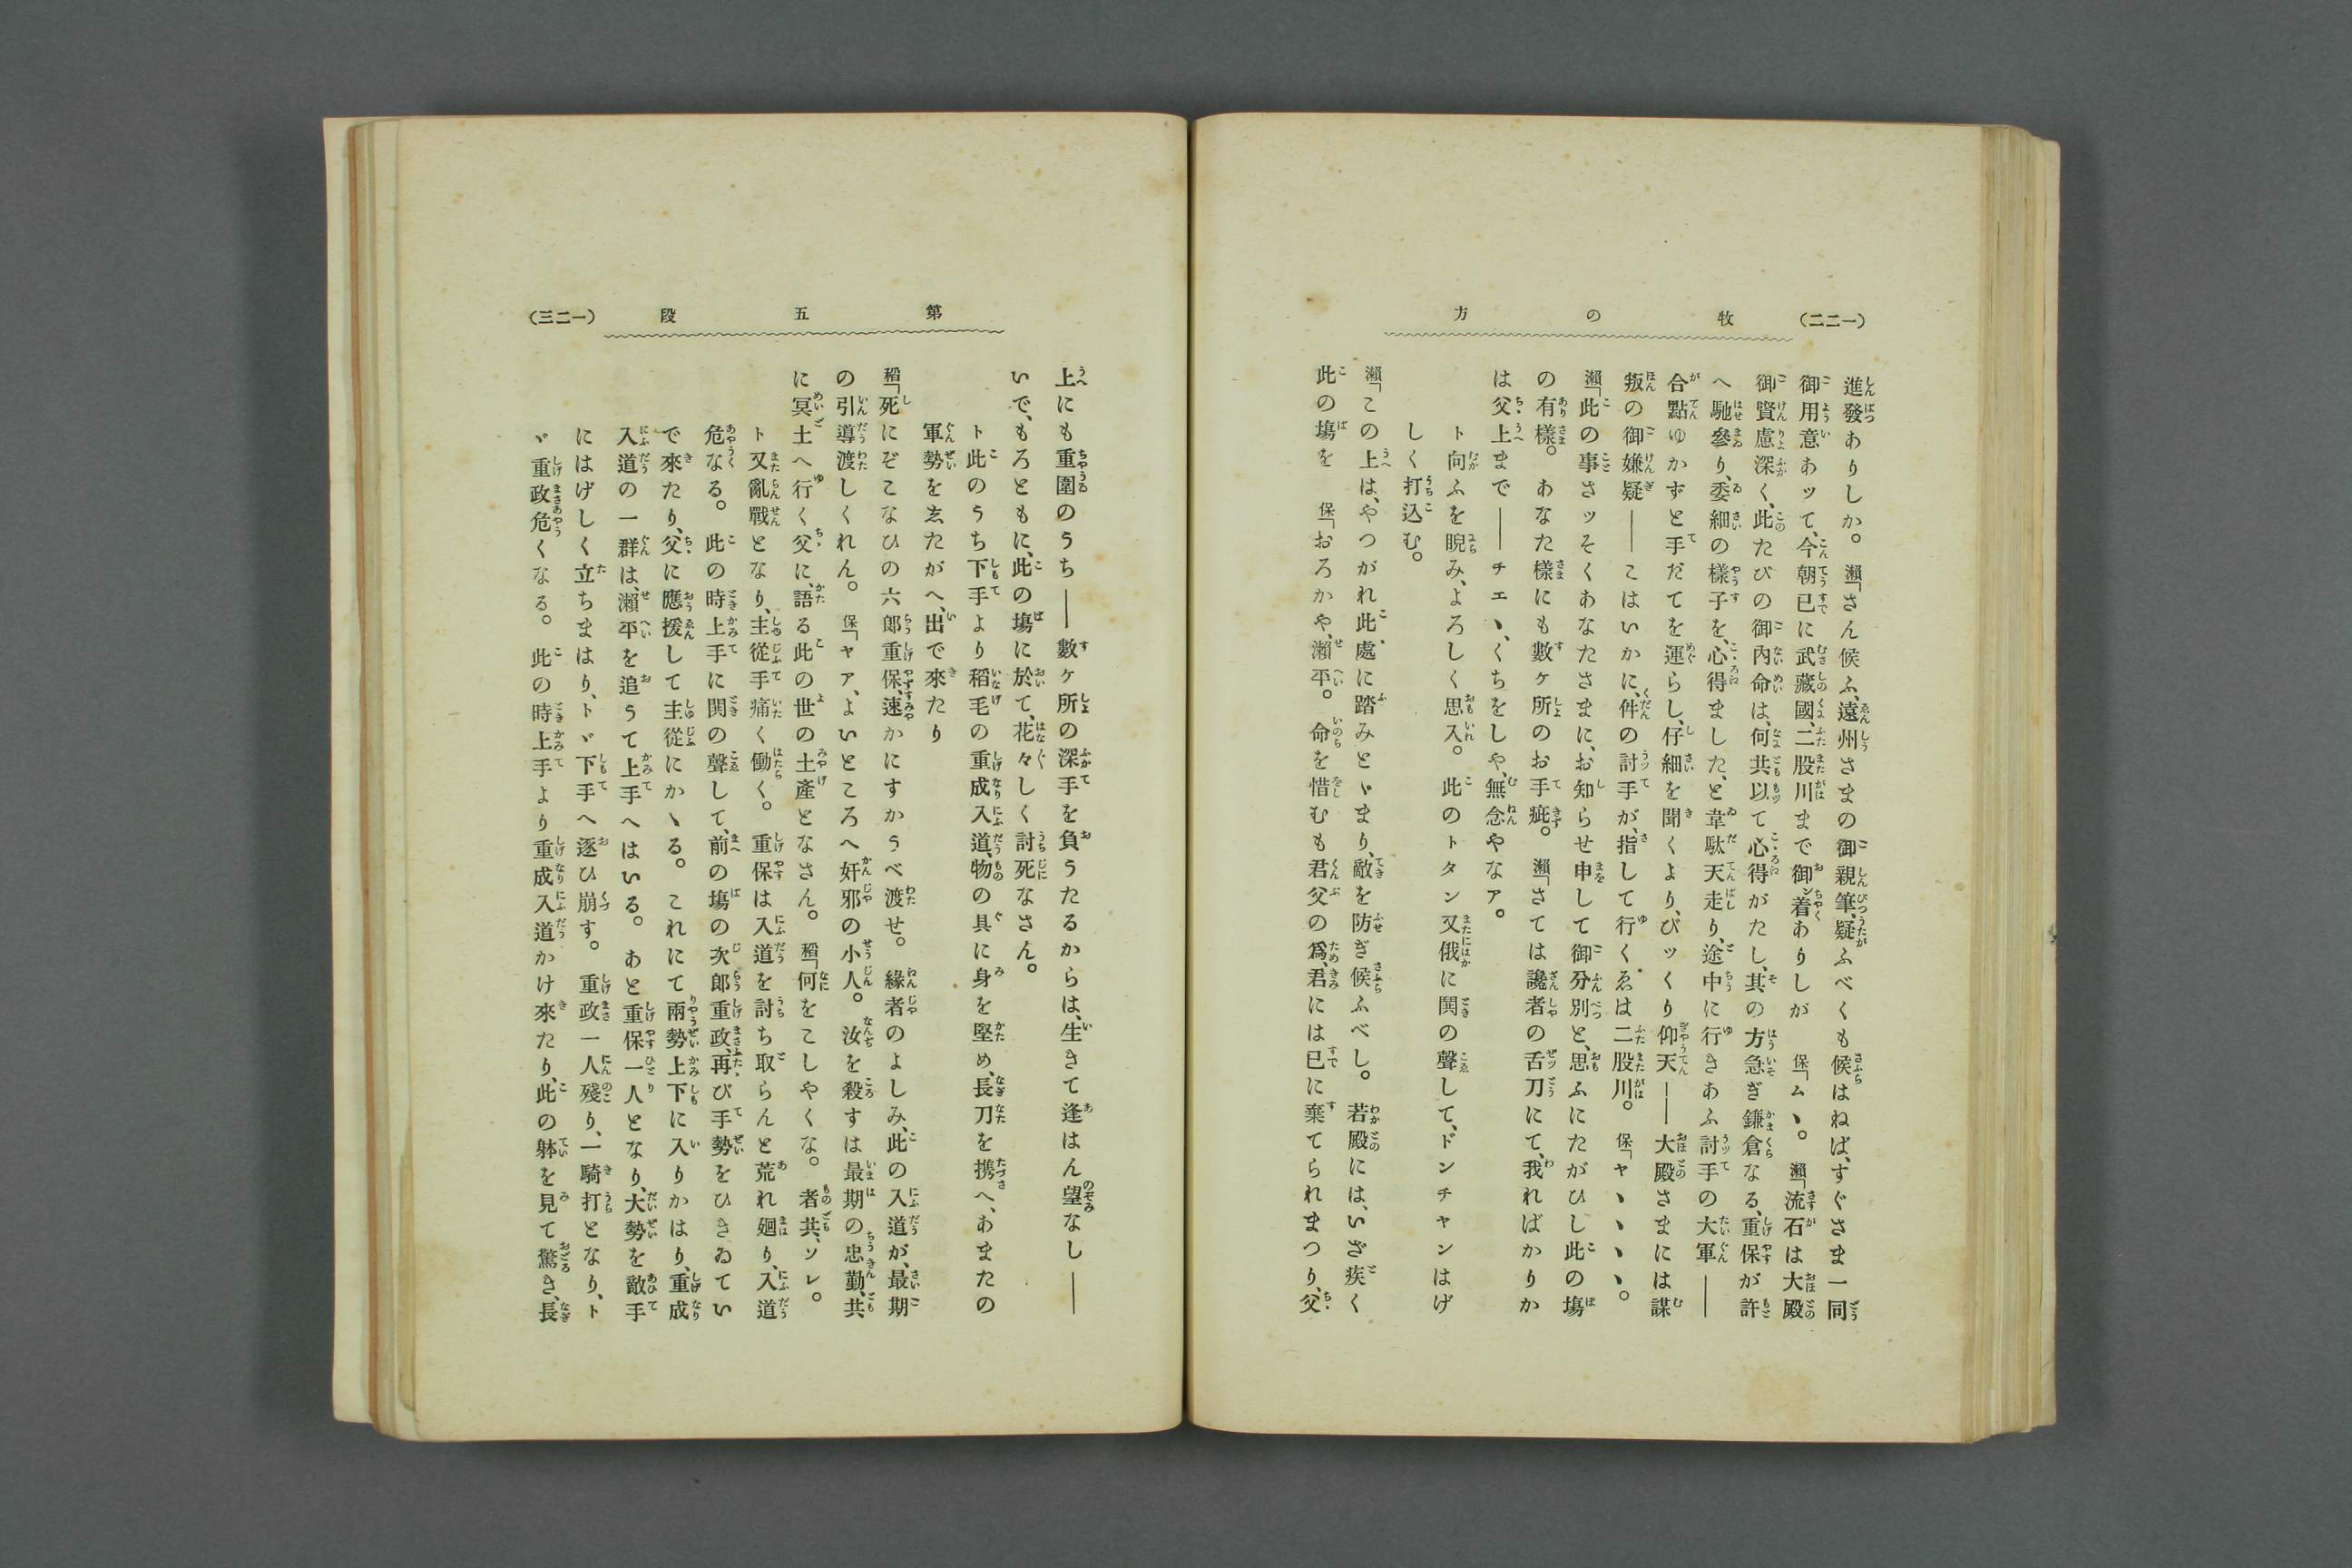 (一二二) 牧の方
進發ありしか。 瀨「さん候ふ、遠州さまの御親筆、疑ふべくも候はねば、すぐさま一同
御用意あッて、今朝已に武藏國、二股川まで御着ありしが 保「ムヽ。 瀨「流石は大殿
御賢慮深く、此たびの御內命は、何共以て心得がたし、其の方急ぎ鎌倉なる、重保が許
へ馳參り、委細の樣子を、心得ました、と韋駄天走り、途中に行きあふ討手の大軍――
合點ゆかずと手だてを運らし、仔細を聞くより、びッくり仰天――大殿さまには謀
叛の御嫌疑――こはいかに、件の討手が、指して行くゑは二股川。 保「ヤヽヽヽ。
瀨「此の事さッそくあなたさまに、お知らせ申して御分別と、思ふにたがひし此の塲
の有樣。 あなた樣にも數ヶ所のお手疵。 瀨「さては讒者の舌刀にて、我ればかりか
は父上まで――チエヽ、くちをしや、無念やなア。
ト向ふを睨み、よろしく思入。 此のトタン又俄に鬨の聲して、ドンチヤンはげ
しく打込む。
瀨「この上は、やつがれ此處に踏みとゞまり、敵を防ぎ候ふべし。 若殿には、いざ疾く
此の塲を 保「おろかや、瀨平。 命を惜むも君父の爲、君には已に棄てられまつり、父
第五段 (一二三)
上にも重圍のうち――數ヶ所の深手を負うたるからは、生きて逢はん望なし――
いで、もろともに、此の塲に於て、花々しく討死なさん。
ト此のうち下手より稻毛の重成入道、物の具に身を堅め、長刀を携へ、あまたの
軍勢をゑたがへ、出で來たり
稻「死にぞこなひの六郞重保、速かにすかうべ渡せ。 緣者のよしみ、此の入道が、最期
の引導渡しくれん。 保「ヤア、よいところへ奸邪の小人。 汝を殺すは最期の忠勤、共
に冥土へ行く父に、語る此の世の土產となさん。 稻「何をこしやくな。 者共、ソレ。
ト又亂戰となり、主從手痛く働く。 重保は入道を討ち取らんと荒れ廻り、入道
危なる。 此の時上手に鬨の聲して、前の塲の次郞重政、再び手勢をひきゐてい
で來たり、父に應援して主從にかゝる。 これにて兩勢上下に入りかはり、重成
入道の一群は、瀨平を追うて上手へはいる。 あと重保一人となり、大勢を敵手
にはげしく立ちまはり、トヾ下手へ逐ひ崩す。 重政一人殘り、一騎打となり、ト
ヾ重政危くなる。 此の時上手より重成入道かけ來たり、此の躰を見て驚き、長